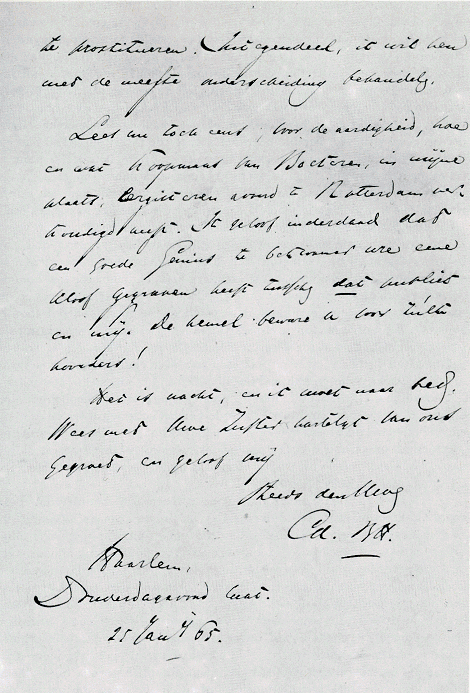 te prostitueren. Integendeel, ik wil hen
met de meeste onderscheiding behandelen.
Lees nu toch eens, voor de aardigheid, hoe
en wat Koopmans van Boekeren, in mijne
plaats, eergisteren avond te Rotterdam ver-
kondigd heeft. Ik geloof inderdaad dat
een goede Genius te betooomer ure eene
kloof gegraven heeft tusschen dat publiek
en mij. De hemel beware u voor zulke
hoorders!
Het is nacht, en ik moet naar bed.
Wees met Uwe Zuster hartelijk van ons
gegroet, en geloof mij
Steeds den Uwe
Cd. B.H.
Haarlem,
Donderdagavond laat.
25 Jany 65.